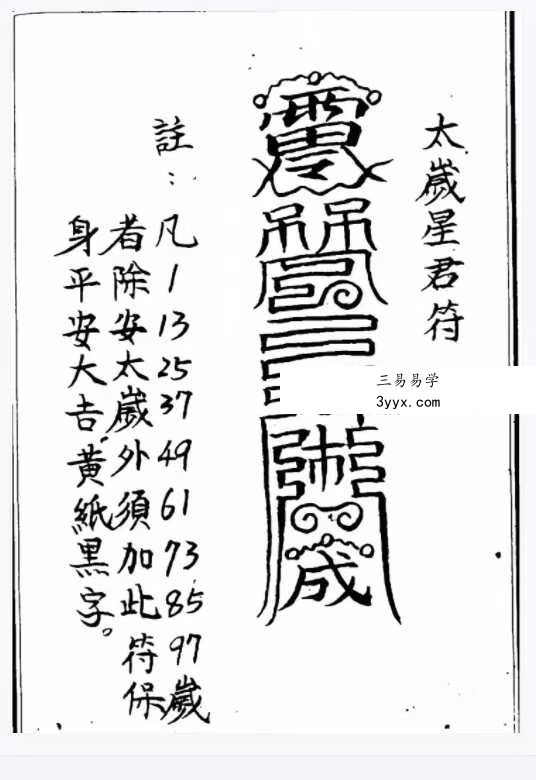 太歲星君符
註：凡1 13 25 37 49 61 73 85 97歲
者除安太歲外須加此符保
身平安大吉，黃紙黑字。
三易易学
3yyx.com